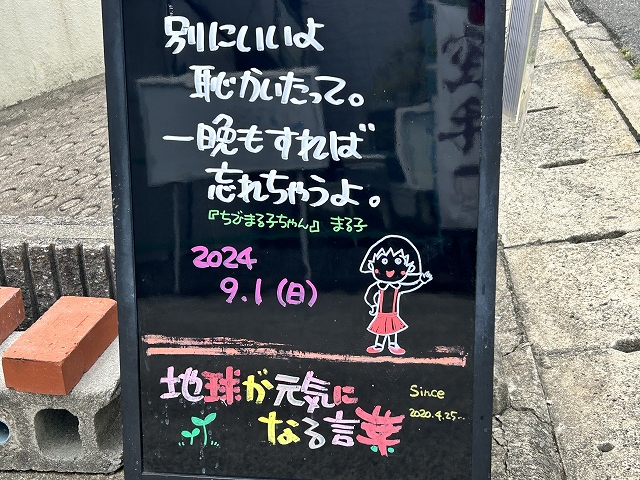 別にいいよ
恥かいたって。
一晩もすれば
忘れちゃうよ。
『ちびまる子ちゃん』 まる子
2024
9.1(日)
地球が元気に
なる言葉
Since
2020.4.25〜